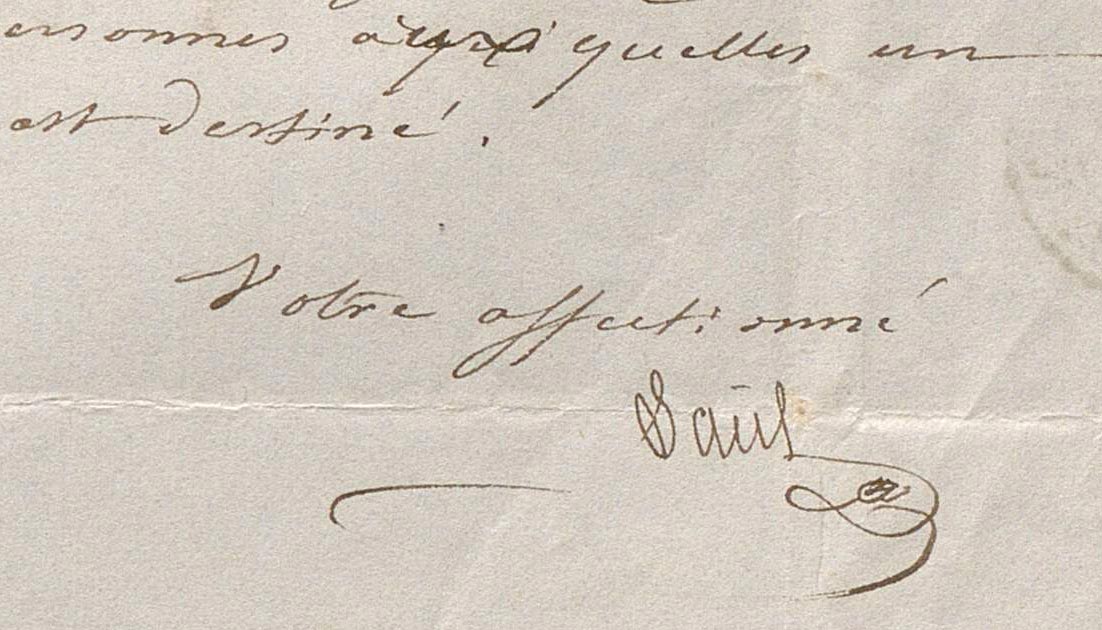 ersonnes auxquelles un
est destiné.
Votre affectionné
Saül